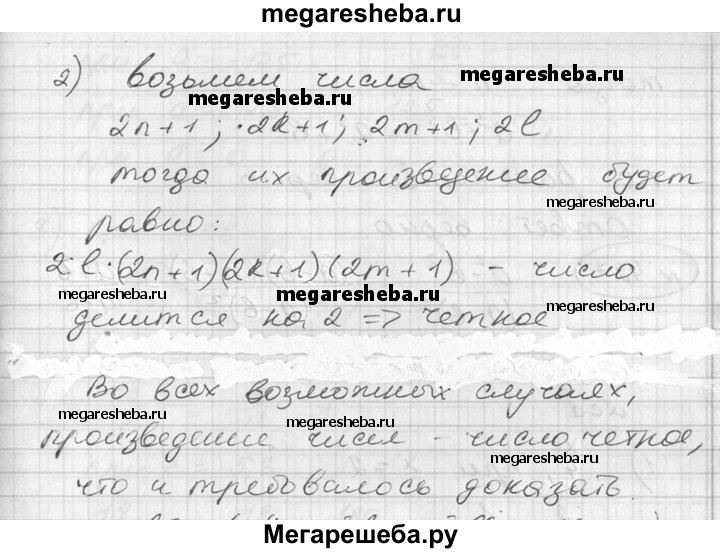 megaresheba.ru
2) возьмем числа megaresheba.ru
megaresheba.ru
2n+1; 2k+1; 2m+1; 2l
тогда их произведение будет
megaresheba.ru
равно:
2·l·(2n+1)(2k+1)(2m+1) - число
megaresheba.ru megaresheba.ru megaresheba.ru
делится на 2 => четное
Во всех возможных случаях,
megaresheba.ru megaresheba.ru
произведение чисел - число четное,
megaresheba.ru
что и требовалось доказать.
megaresheba.ru megaresheba.ru
Мегарешеба.ру